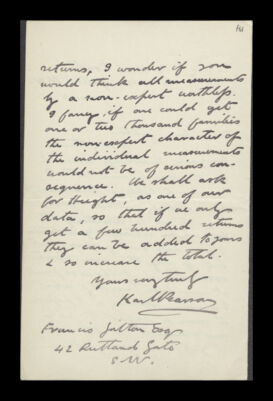 returns, I wonder if you
would think all measurements
by a non-expert worthless.
I fancy, if one could get
one or two thousand families
the non expert character of
the individual measurements
would not be of serious con-
sequence. We shall ask
for height, as one of our
data, so that if we only
get a few hundred returns
they can be added to yours
& so increase the total.
Yours very truly
Karl Pearson
Francis Galton Esq
42 Rutland Gate
S.W.